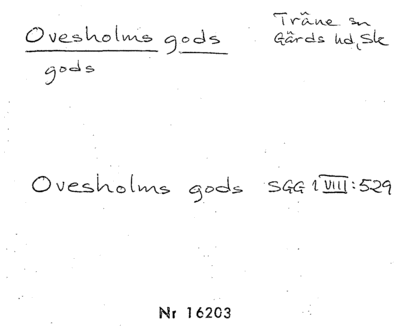 Ovesholms gods
gods
Träne sn
Gärds hd, Sk
Ovesholms gods SGG 1 VIII:529
Nr 16203